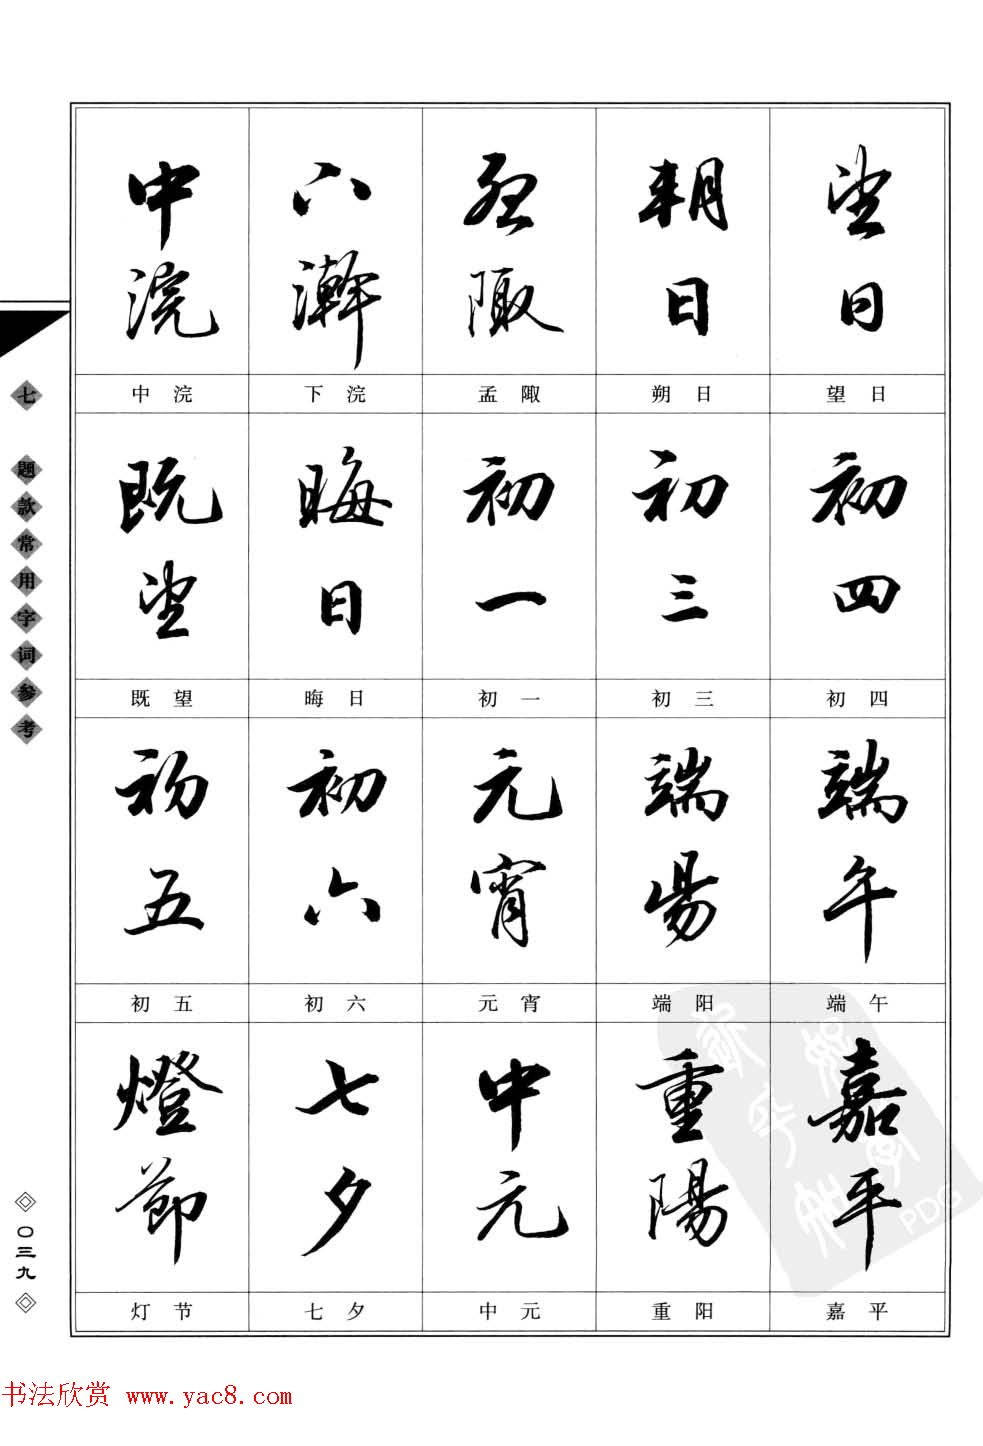 中浣 下澣 孟陬 朔日 望日
中浣 下浣 孟陬 朔日 望日
既望 晦日 初一 初三 初四
既望 晦日 初一 初三 初四
初五 初六 元宵 端陽 端午
初五 初六 元宵 端阳 端午
燈節 七夕 中元 重陽 嘉平
灯节 七夕 中元 重阳 嘉平
七 题款常用字词参考
〇三九
PDG
书法欣赏 www.yac8.com